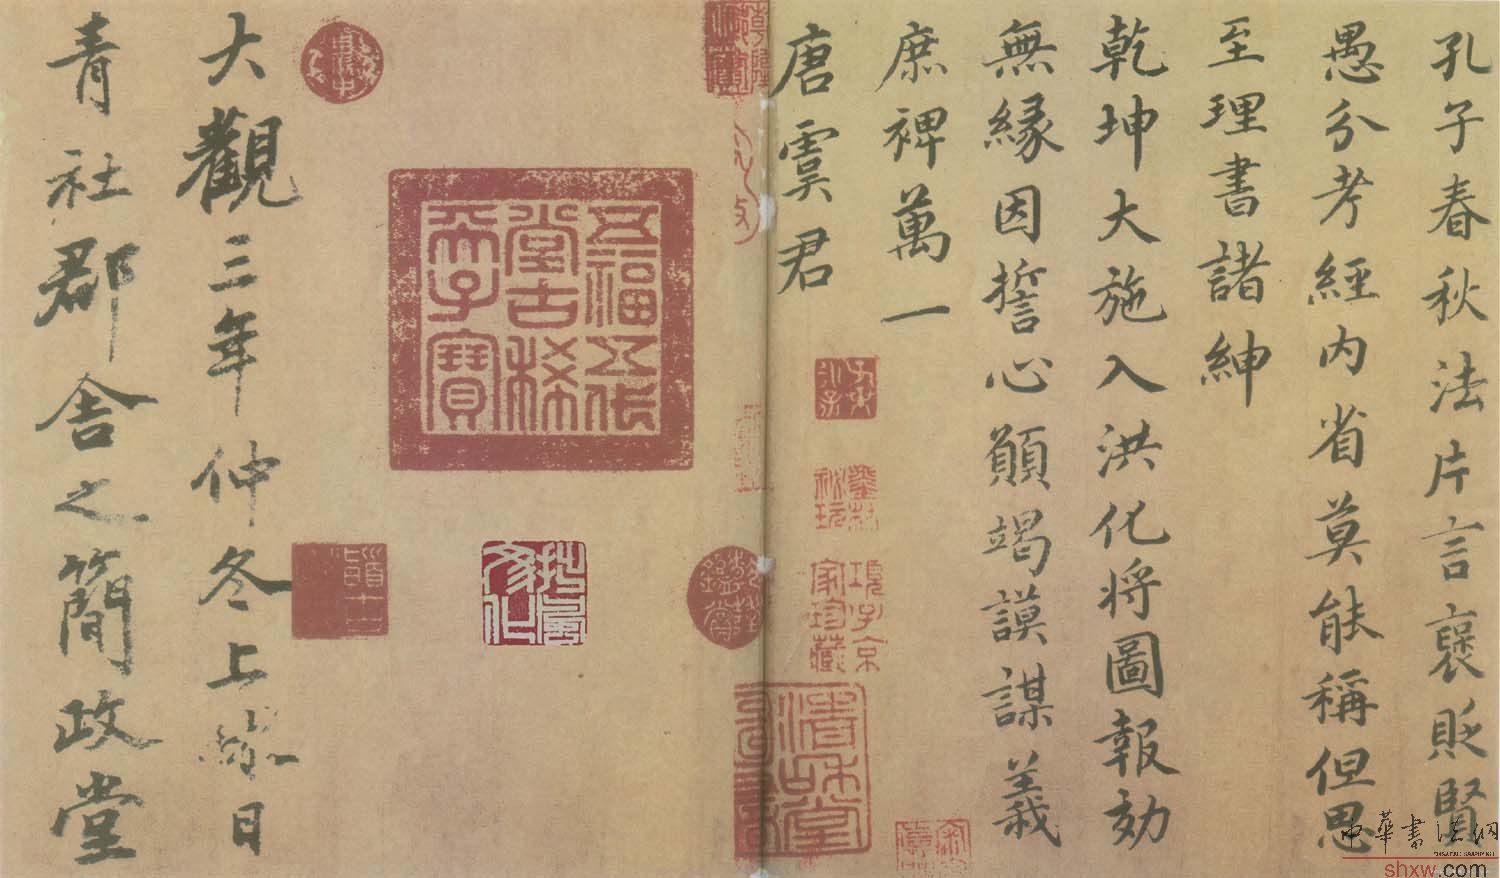 孔子春秋法片言褒貶賢
愚分考經內省莫能稱但思
至理書諸紳
乾坤大施入洪化將圖報効
無緣因誓心願竭謨謀義
庶裨萬一
唐虞君
五福五代
堂古稀
天子寶
項子京
家珍藏
大觀三年仲冬上澣日
青社郡舍之簡政堂
中華書法網
shxw.com